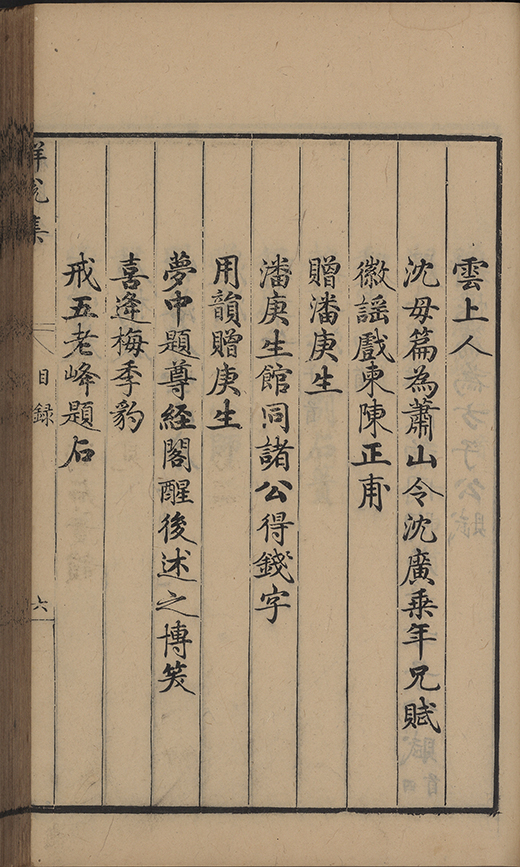 雲上人
沈母篇為蕭山令沈廣乗年兄賦
徽謡戲柬陳正甫
贈潘庚生
潘庚生館同諸公得錢字
用韻贈庚生
夢中題尊經閣醒後述之博笑
喜逢梅季豹
戒五老峰題石
目録
六